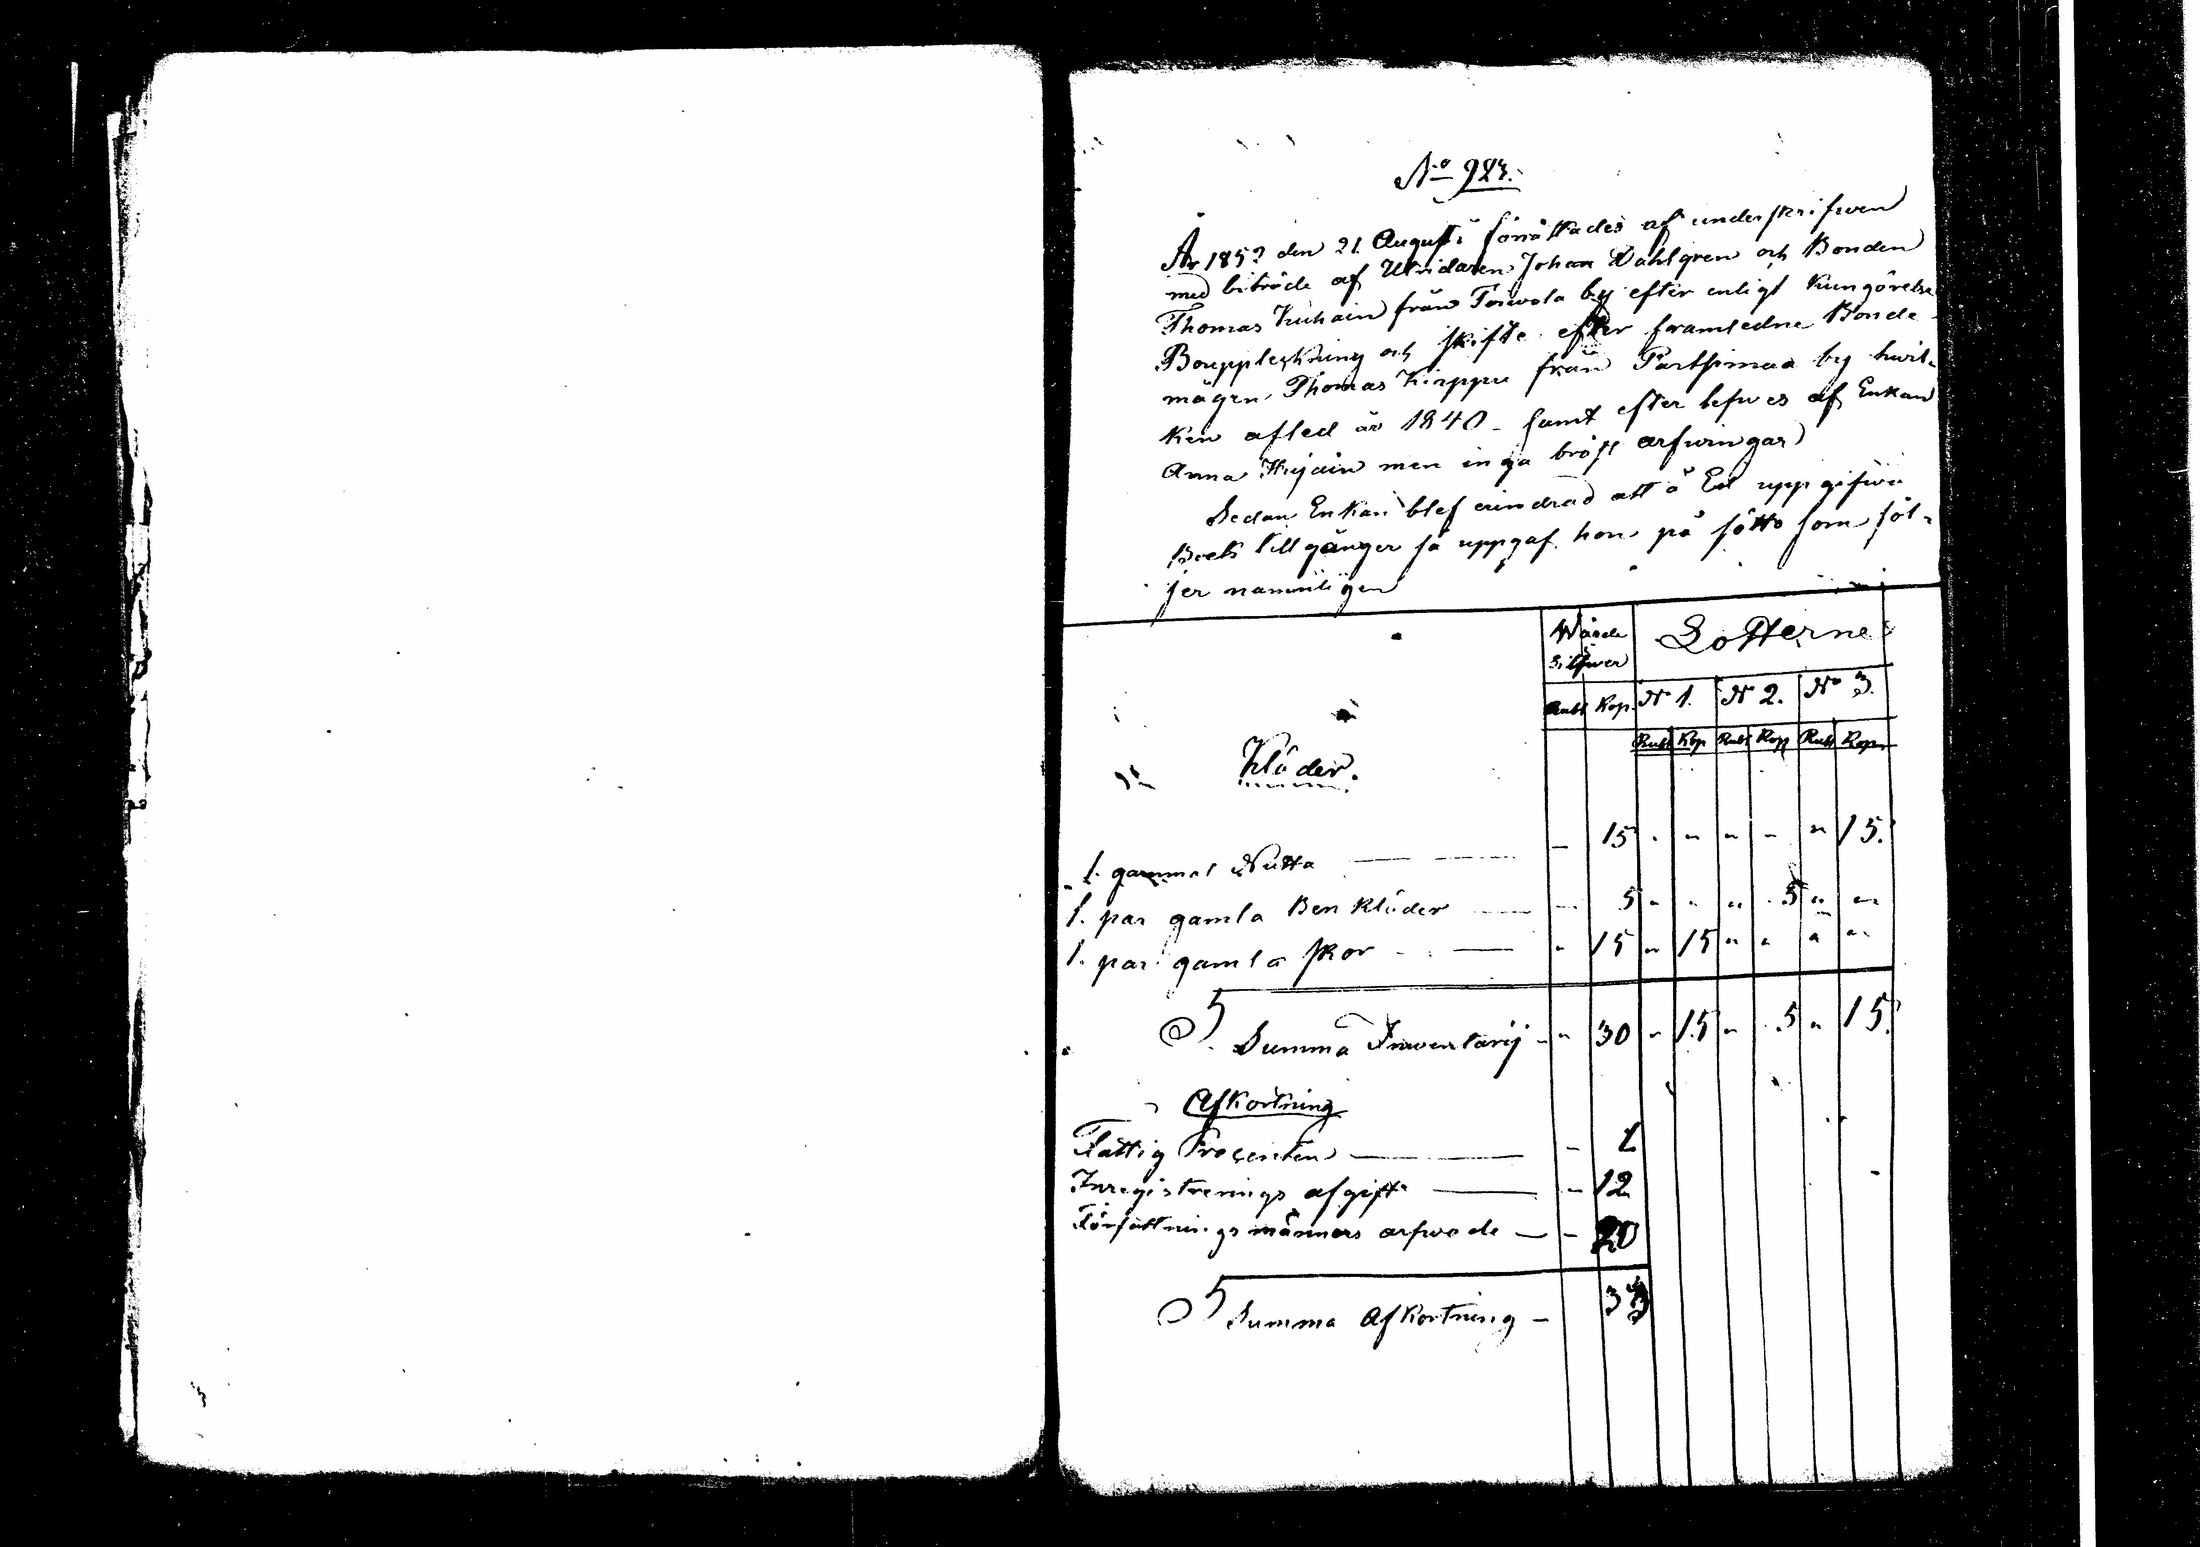 No 923.
År 1853 den 21 Augusti förrättades af underskrifwen
med biträde af Utridaren Johan Dahlgren och Bonden
Thomas Kuhain från Torwola by efter enligt Kungörelse
Bouppteckning och skifte efter framledne Bonde
mågen Thomas Kirppu från by hwil-
ken afled år 1840 - samt efter lefwes af Enkan
Anna Hujain men inga bröst arfwingar
Sedan Enkan blef erindrad att å Ed uppgifwa
Boets tillgånger så uppgaf hon på sätt som föl-
jer nämnligen
Wärde Lotterne
Silfwer
Rubl Kop. No 1. No 2. No 3.
Rubl Kop Rubl Kop Rubl Kop
Kläder.
1. gammal Nutta — — 15 " " " " " 15.
1. par gamla Benkläder — — 5 " " " 5 " "
1. par gamla skor — " 15 " 15 " " " "
Summa Inventarij - " 30 " 15 " 5 " 15.
Afkortning
Fattig Procenten — - 1
Inregistrerings afgift — - 12
Författnings männers arfwode — - 20
Summa Afkortning - 33